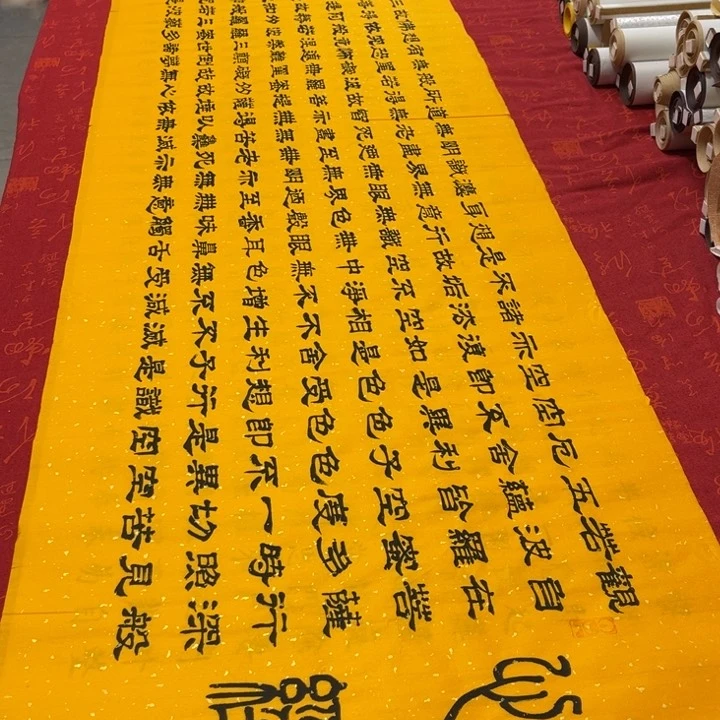 觀自在菩薩行深般
若波羅蜜多時照見
五蘊皆空度一切苦
厄舍利子色不異空
空不異色色即是空
空即是色受想行識
亦復如是舍利子是
諸法空相不生不滅
不垢不淨不增不減
是故空中無色無受
想行識無眼耳鼻舌
身意無色聲香味觸
法無眼界乃至無意
識界無無明亦無無
明盡乃至無老死亦
無老死盡無苦集滅
道無智亦無得以無
所得故菩提薩埵依
般若波羅蜜多故心
無罣礙無罣礙故無
有恐怖遠離顛倒夢
想究竟涅槃三世諸
佛依般若波羅蜜多
故得阿耨多羅三藐